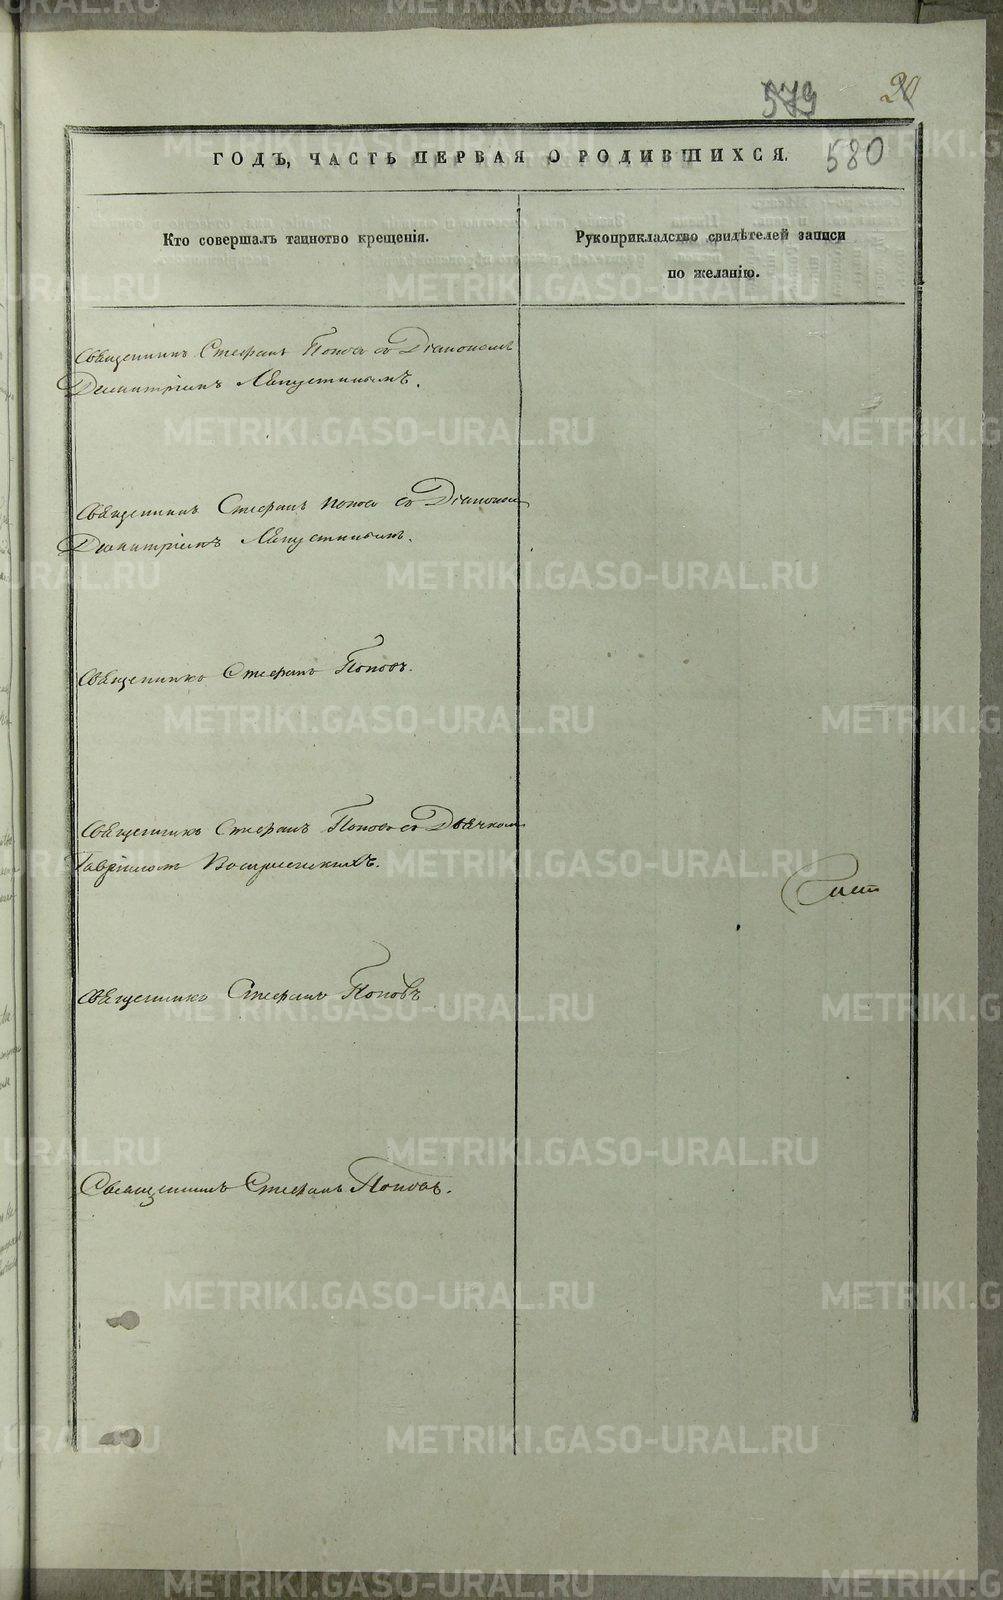 579 20
580
ГОДЪ, ЧАСТЬ ПЕРВАЯ О РОДИВШИХСЯ.
Кто совершалъ таинство крещенія.
Рукоприкладство свидѣтелей записи
по желанію.
Священникъ Стефанъ Поповъ съ Діакономъ
Димитріемъ Ляпустинымъ.
Священникъ Стефанъ Поповъ съ Діакономъ
Димитріемъ Ляпустинымъ.
Священникъ Стефанъ Поповъ.
Священникъ Стефанъ Поповъ съ Дьячкомъ
Гавріиломъ Воскресенскимъ.
Священникъ Стефанъ Поповъ
Священникъ Стефанъ Поповъ.
METRIKI.GASO-URAL.RU